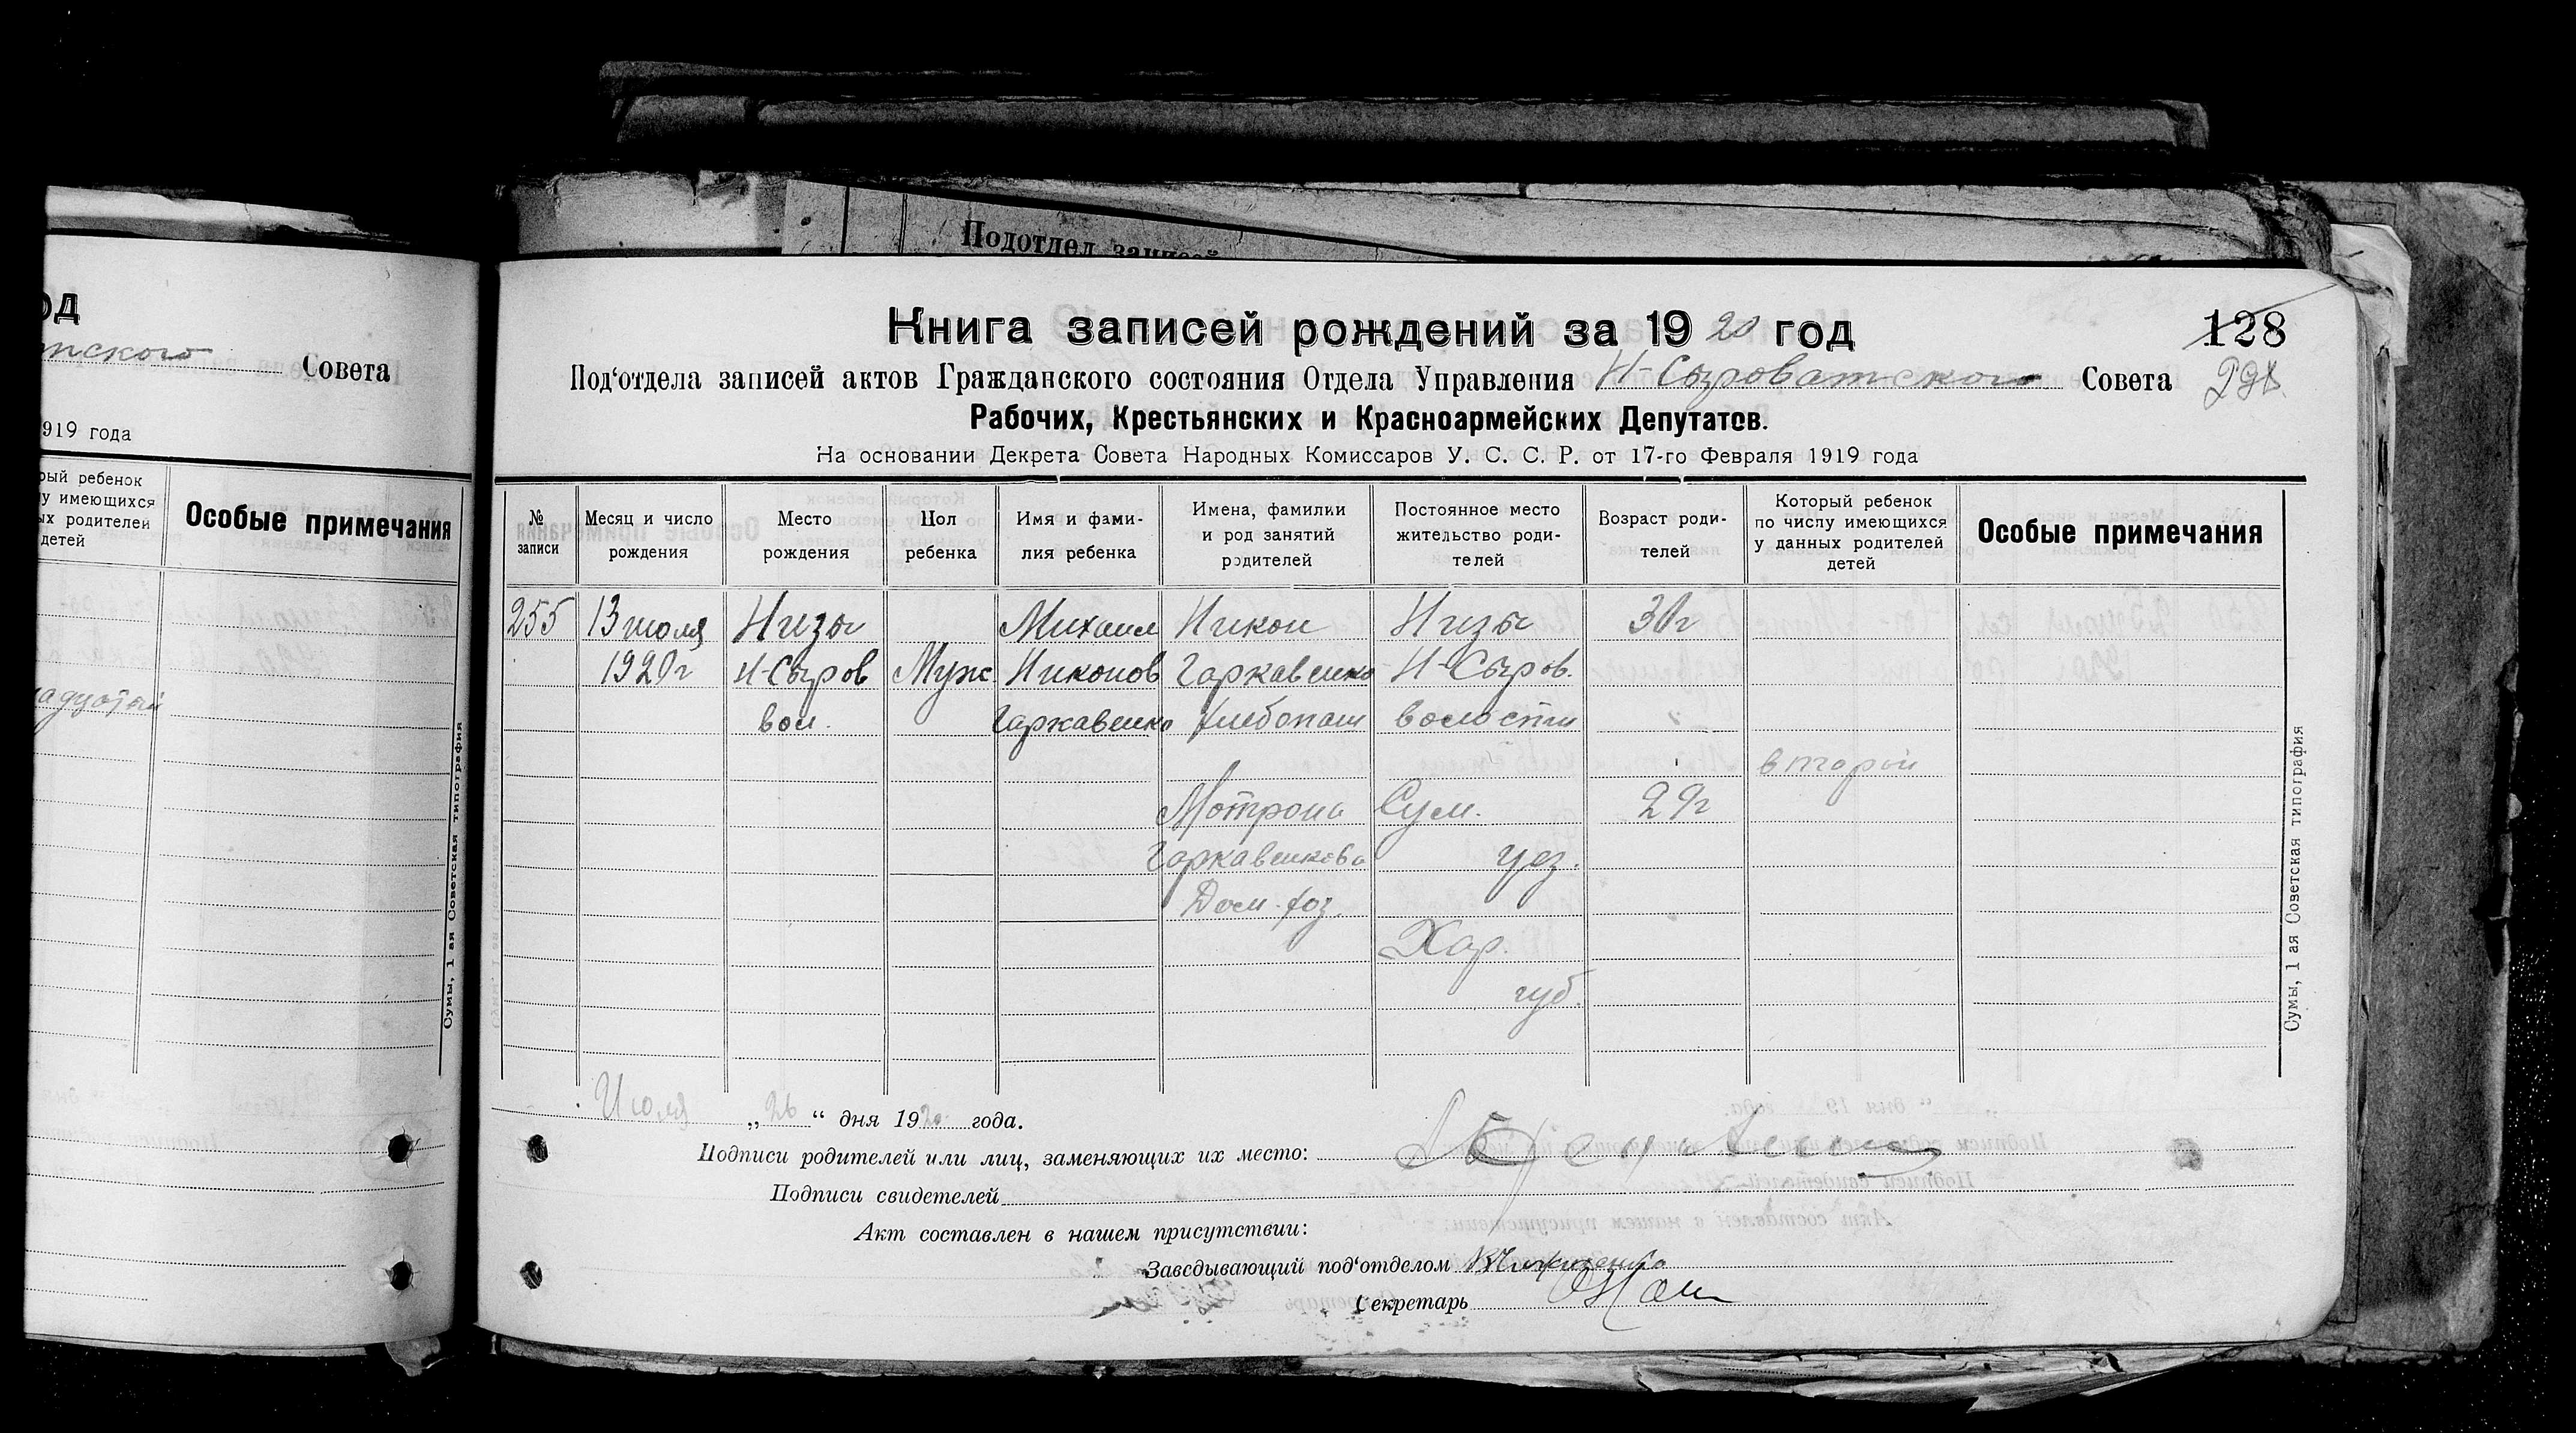 Подотдел записей
од
тского Совета
919 года
рый ребенок
у имеющихся
ых родителей
детей
Особые примечания
адцатый
Сумы, 1 ая Советская типография
Книга записей рождений за 1920 год
128
Под‘отдела записей актов Гражданского состояния Отдела Управления Н-Сыроватского Совета
Рабочих, Крестьянских и Красноармейских Депутатов.
На основании Декрета Совета Народных Комиссаров У. С. С. Р. от 17-го Февраля 1919 года
№ записи
Месяц и число рождения
Место рождения
Пол ребенка
Имя и фами-
лия ребенка
Имена, фамилии
и род занятий
родителей
Постоянное место
жительство роди-
телей
Возраст роди-
телей
Который ребенок
по числу имеющихся
у данных родителей
детей
Особые примечания
255 13 июля Низы Михаил Никон Низы 30г
1920г Н-Сыров Муж Никонов Гаркавенко Н-Сыров.
вол. Гаркавенко хлебопаш волости
второй
Мотрона Сум. 29г
Гаркавенкова уез.
Дом. хоз.
Хар.
губ.
Сумы, 1 ая Советская типография
Июля „26“ дня 1920 года.
Подписи родителей или лиц, заменяющих их место:
Подписи свидетелей
Акт составлен в нашем присутствии:
Заведывающий под‘отделом
Секретарь